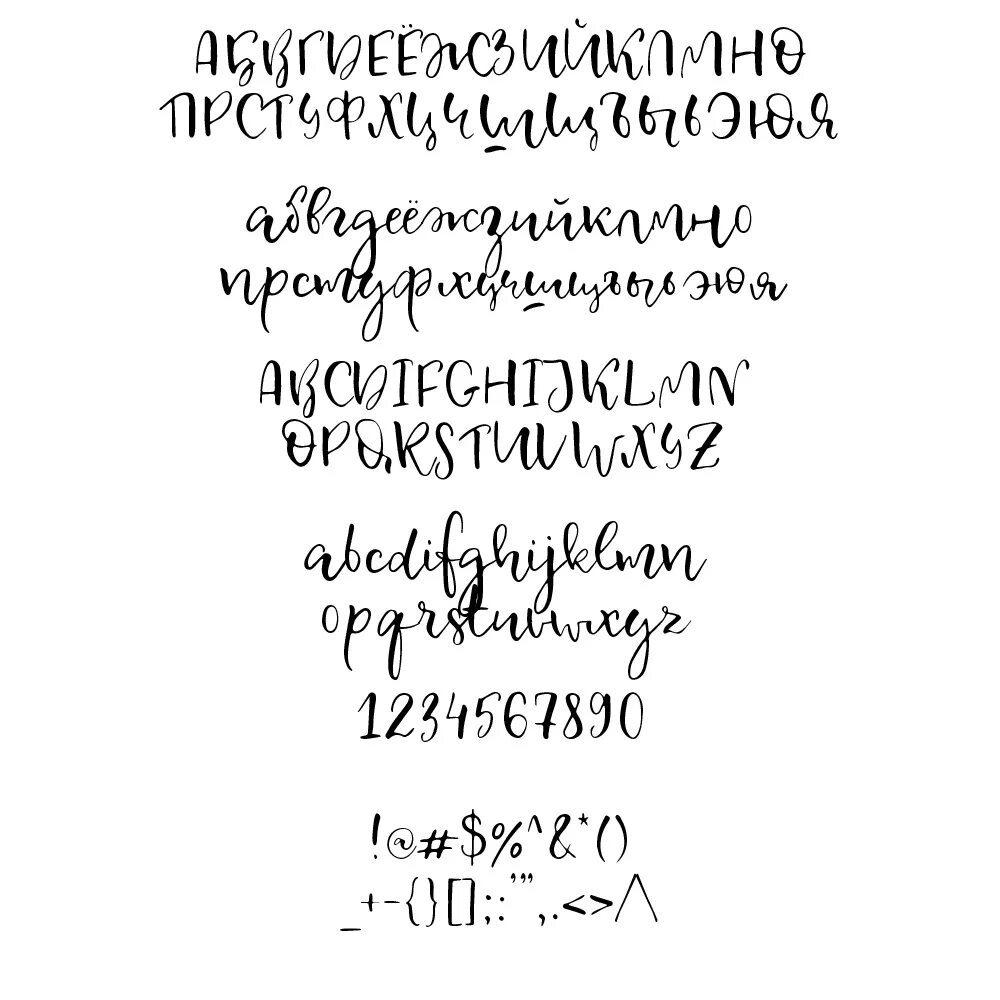 АБВГДЕЁЖЗИЙКЛМНО
ПРСТУФХЦЧШЩЪЫЬЭЮЯ
абвгдеёжзийклмно
прстуфхцчшщъыьэюя
ABCDIFGHIJKLMN
OPQRSTUVWXYZ
abcdifghijklmn
opqrstuvwxyz
1234567890
!@#$%^&*()
_+-{}[];:'",.<>/\